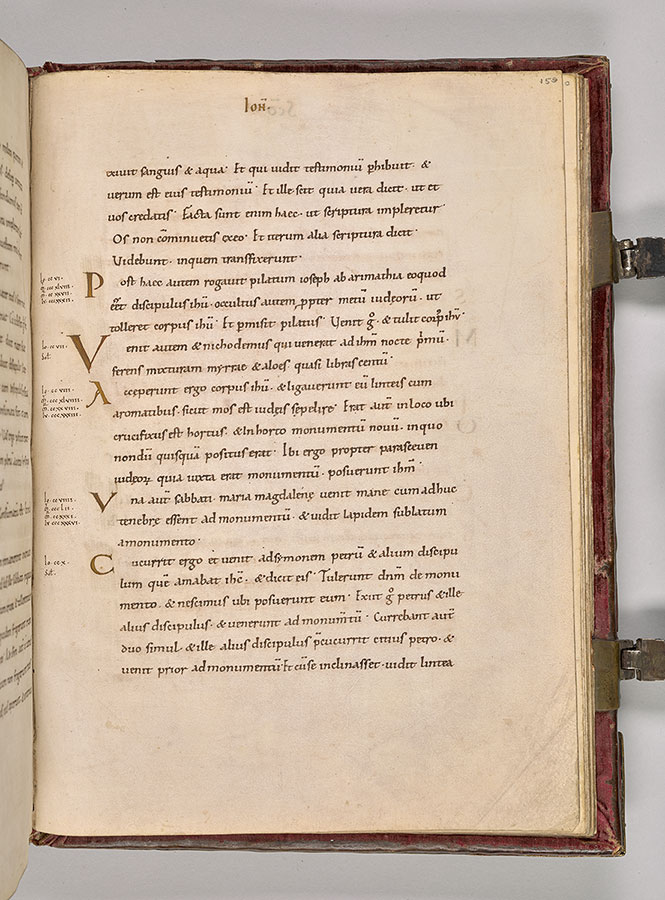 159
Ioħ.
exivit sanguis & aqua. Et qui vidit testimoniū phibuit. &
verum est eius testimoniū. Et ille scit quia vera dicit. ut et
vos credatis. Facta sunt enim haec. ut scriptura impleretur.
Os non cōminuetis ex eo. Et iterum alia scriptura dicit.
Videbunt. in quem transfixerunt.
Post haec autem rogavit pilatum ioseph ab arimathia eo quod
eēt discipulus ihū. occultus autem ppter metū iudeorū. ut
tolleret corpus ihū. Et pmisit pilatus. Venit gͦ. & tulit corp' ihū.
Venit autem & nichodemus qui venerat ad ihm̄ nocte pmū.
ferens mixturam myrrae & aloes quasi libras centū.
Acceperunt ergo corpus ihū. & ligaverunt eū linteis cum
aromatibus. sicut mos est iudeis sepelire. Erat aut̄ in loco ubi
crucifixus est hortus. & in horto monumentū novū. in quo
nondū quisquā positus erat. Ibi ergo propter parasceven
iudeoꝝ quia iuxta erat monumentū. posuerunt ihm̄.
Una aut̄ sabbati. maria magdalene venit mane cum adhuc
tenebrę essent ad monumentū. & vidit lapidem sublatum
a monumento.
Cucurrit ergo et venit ad symonem petrū & alium discipu
lum quē amabat ihc̄. & dicit eis. Tulerunt dnm̄ de monu
mento. & nescimus ubi posuerunt eum. Exiit gͦ petrus & ille
alius discipulus. & venerunt ad monumtū. Currebant aut̄
duo simul. & ille alius discipulus p̄cucurrit citius petro. &
venit prior ad monumentū. Et cū se inclinasset. vidit lintea